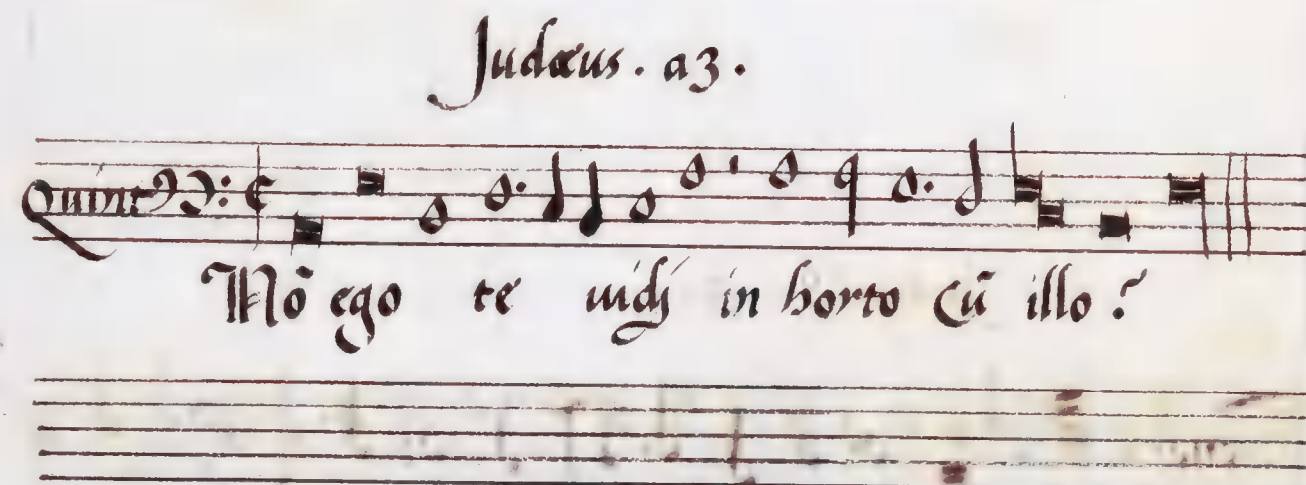 Judæus. a3.
Quint⁹
Nō ego te uidj in horto cū illo?